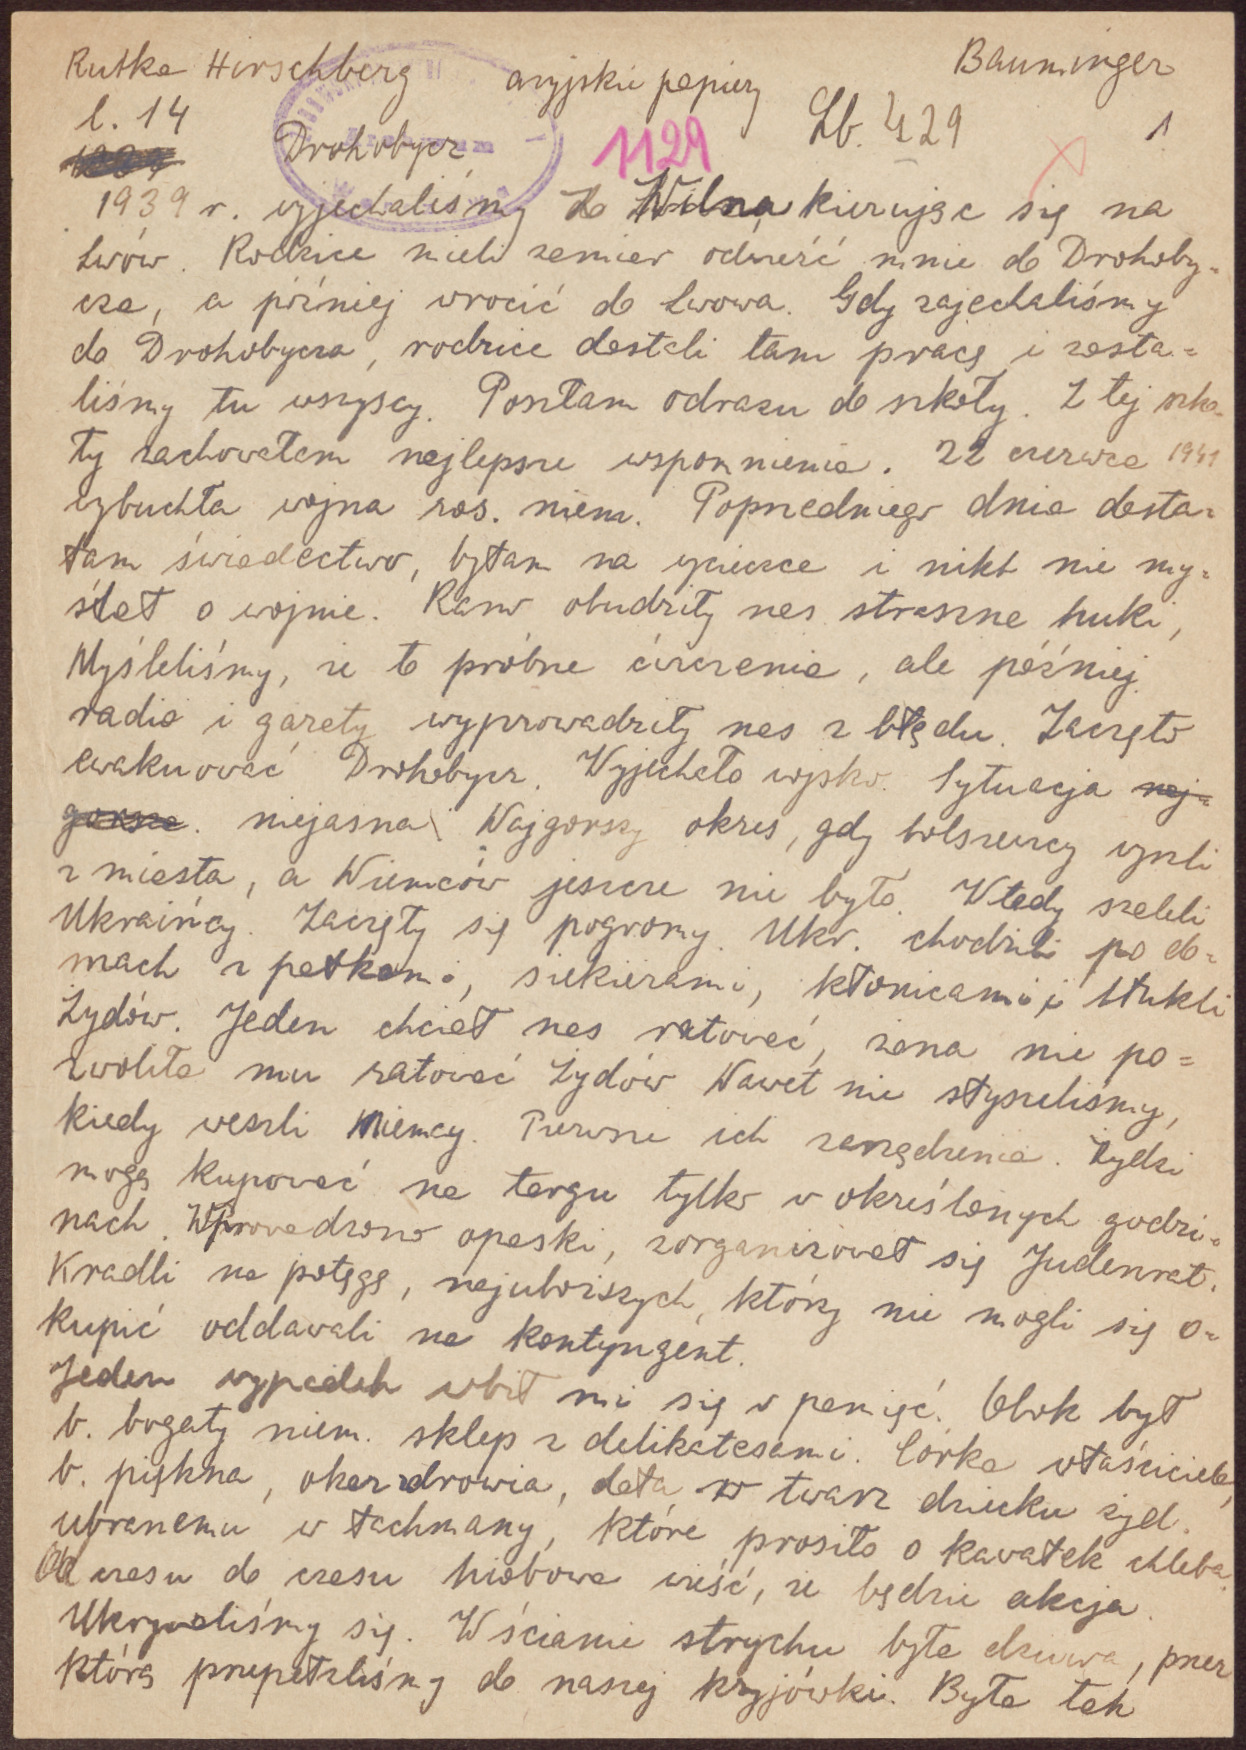 Rutka Hirschberg aryjskie papiery Bauminger
l. 14 Lb. 429 1
Drohobycz 1129
1939 r. wyjechaliśmy do Wilna kierując się na
Lwów. Rodzice mieli zamiar odwieźć mnie do Drohoby-
cza, a później wrocić do Lwowa. Gdy zajechaliśmy
do Drohobycza, rodzice dostali tam pracę i zosta-
liśmy tu wszyscy. Poszłam odrazu do szkoły. Z tej szko-
ły zachowałam najlepsze wspomnienie. 22 czerwca 1941
wybuchła wojna ros. niem. Poprzedniego dnia dosta-
łam świadectwo, byłam na wycieczce i nikt nie my-
ślał o wojnie. Rano obudziły nas straszne huki,
Myśleliśmy, że to próbne ćwiczenia, ale później
radio i gazety wyprowadziły nas z błędu. Zaczęto
ewakuować Drohobycz. Wyjechało wojsko. Sytuacja naj-
gorsza. niejasna Najgorszy okres, gdy bolszewicy wyszli
z miasta, a Niemców jeszcze nie było. Wtedy szaleli
Ukraińcy. Zaczęły się pogromy. Ukr. chodzili po do-
mach z pałkami, siekierami, kłonicami i tłukli
Żydów. Jeden chciał nas ratować, żona nie po-
zwoliła mu ratować Żydów Nawet nie słyszeliśmy,
kiedy weszli Niemcy. Pierwsze ich zarządzenia. Żydzi
mogą kupować na targu tylko w określonych godzi-
nach. Wprowadzono opaski, zorganizował się Judenrat.
Kradli na potęgę, najuboższych, którzy nie mogli się o-
kupić oddawali na kontyngent.
Jeden wypadek wbił mi się w pamięć. Obok był
b. bogaty niem. sklep z delikatesami. Córka właściciela,
b. piękna, okaz zdrowia, dała w twarz dziecku żyd.
ubranemu w łachmany, które prosiło o kawałek chleba.
Od czasu do czasu hiobowa wieść, że będzie akcja.
Ukrywaliśmy się. W ścianie strychu była dziura, przez
którą przepełzliśmy do naszej kryjówki. Była tak